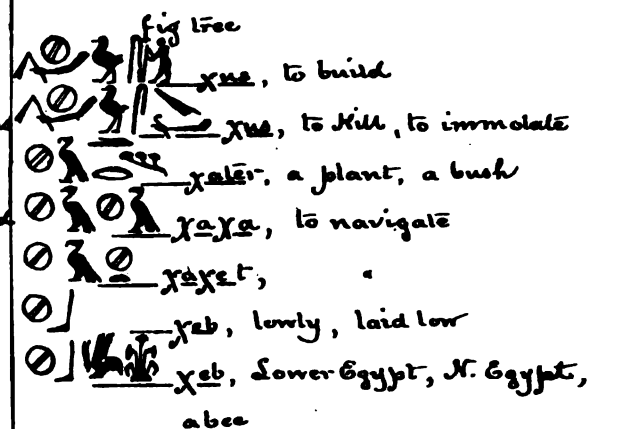 fig tree
χus, to build
χus, to Kill, to immolate
χater, a plant, a bush
χaχa, to navigate
χaχet, "
χeb, lowly, laid low
χeb, Lower Egypt, N. Egypt,
a bee